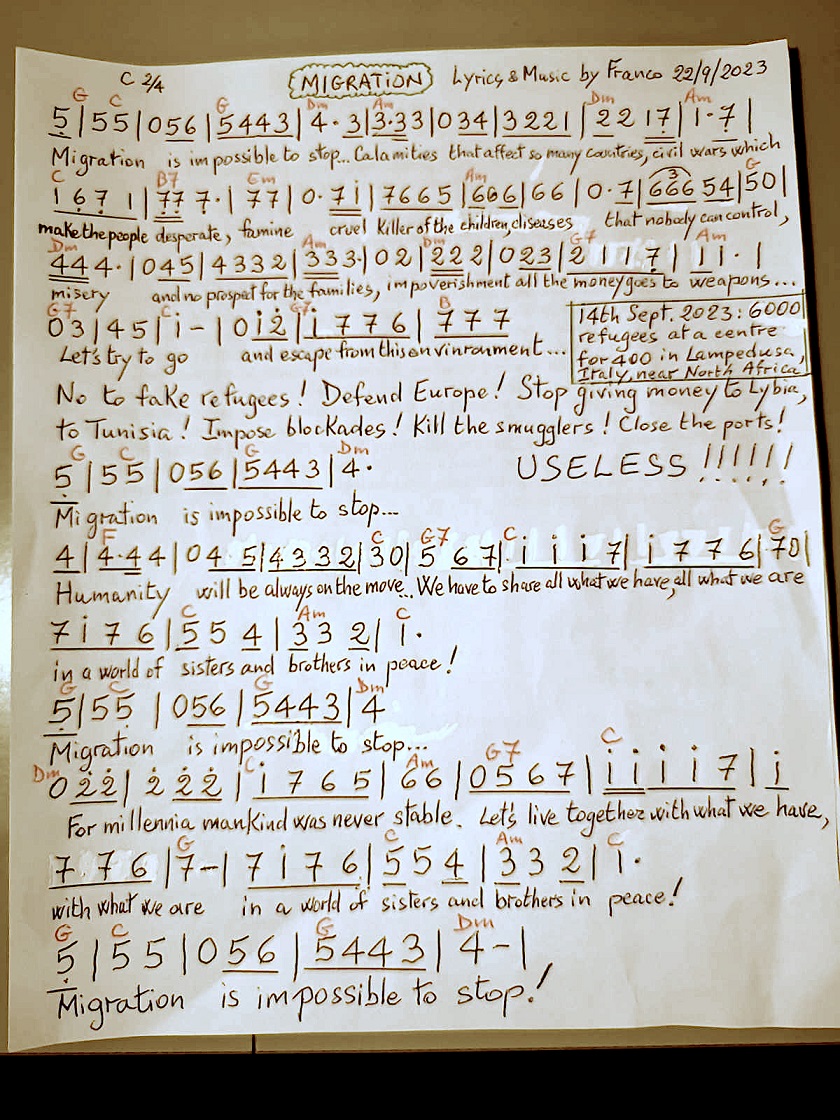 C 2/4 MIGRATION Lyrics & Music by Franco 22/9/2023
G C G Dm Am Dm Am
5̣ | 5 5 | 0 5 6 | 5 4 4 3 | 4 · 3 | 3 · 3 3 | 0 3 4 | 3 2 2 1 | 2 2 1 7̣ | 1 · 7̣ |
Migration is impossible to stop... Calamities that affect so many countries, civil wars which
C B7 Em Am G
1 6̣ 7̣ 1 | 7̣ 7̣ 7 · | 7 7 | 0 · 7 i | 7 6 6 5 | 6 6 6 | 6 6 | 0 · 7 | 6 6 6 5 4 | 5 0 |
3
make the people desperate, famine cruel killer of the children, diseases that nobody can control,
Dm Am Dm G7 Am
4 4 4 4 · | 0 4 5 | 4 3 3 2 | 3 3 3 3 · | 0 2 | 2 2 2 2 | 0 2 3 | 2 1 1 7̣ | 1 1 · |
misery and no prospect for the families, impoverishment all the money goes to weapons...
G7 C G7 B
0 3 | 4 5 | i – | 0 i 2̇ | i 7 7 6 | 7 7 7
Let's try to go and escape from this envinronment...
14th Sept. 2023 : 6000
refugees at a centre
for 400 in Lampedusa,
Italy, near North Africa
No to fake refugees! Defend Europe! Stop giving money to Lybia,
to Tunisia! Impose blockades! Kill the smugglers! Close the ports!
G C G Dm
5̣ | 5 5 | 0 5 6 | 5 4 4 3 | 4 ·
USELESS !!!!!!
Migration is impossible to stop...
F C G7 C G
4 | 4 · 4 4 | 0 4 5 | 4 3 3 2 | 3 0 | 5 6 7 | i i i 7 | i 7 7 6 | 7 0 |
Humanity will be always on the move.. We have to share all what we have, all what we are
C Am C
7 i 7 6 | 5 5 4 | 3 3 2 | i ·
in a world of sisters and brothers in peace!
G C G Dm
5̣ | 5 5 | 0 5 6 | 5 4 4 3 | 4
Migration is impossible to stop...
Dm C Am G7 C
0 2̇ 2̇ | 2̇ 2̇ 2̇ | i 7 6 5 | 6 6 | 0 5 6 7 | i i i i 7 | i
For millennia mankind was never stable. Let's live together with what we have,
G C Am C
7 7 6 | 7 – | 7 i 7 6 | 5 5 4 | 3 3 2 | i ·
with what we are in a world of sisters and brothers in peace!
G C G Dm
5̣ | 5 5 | 0 5 6 | 5 4 4 3 | 4 – |
Migration is impossible to stop!